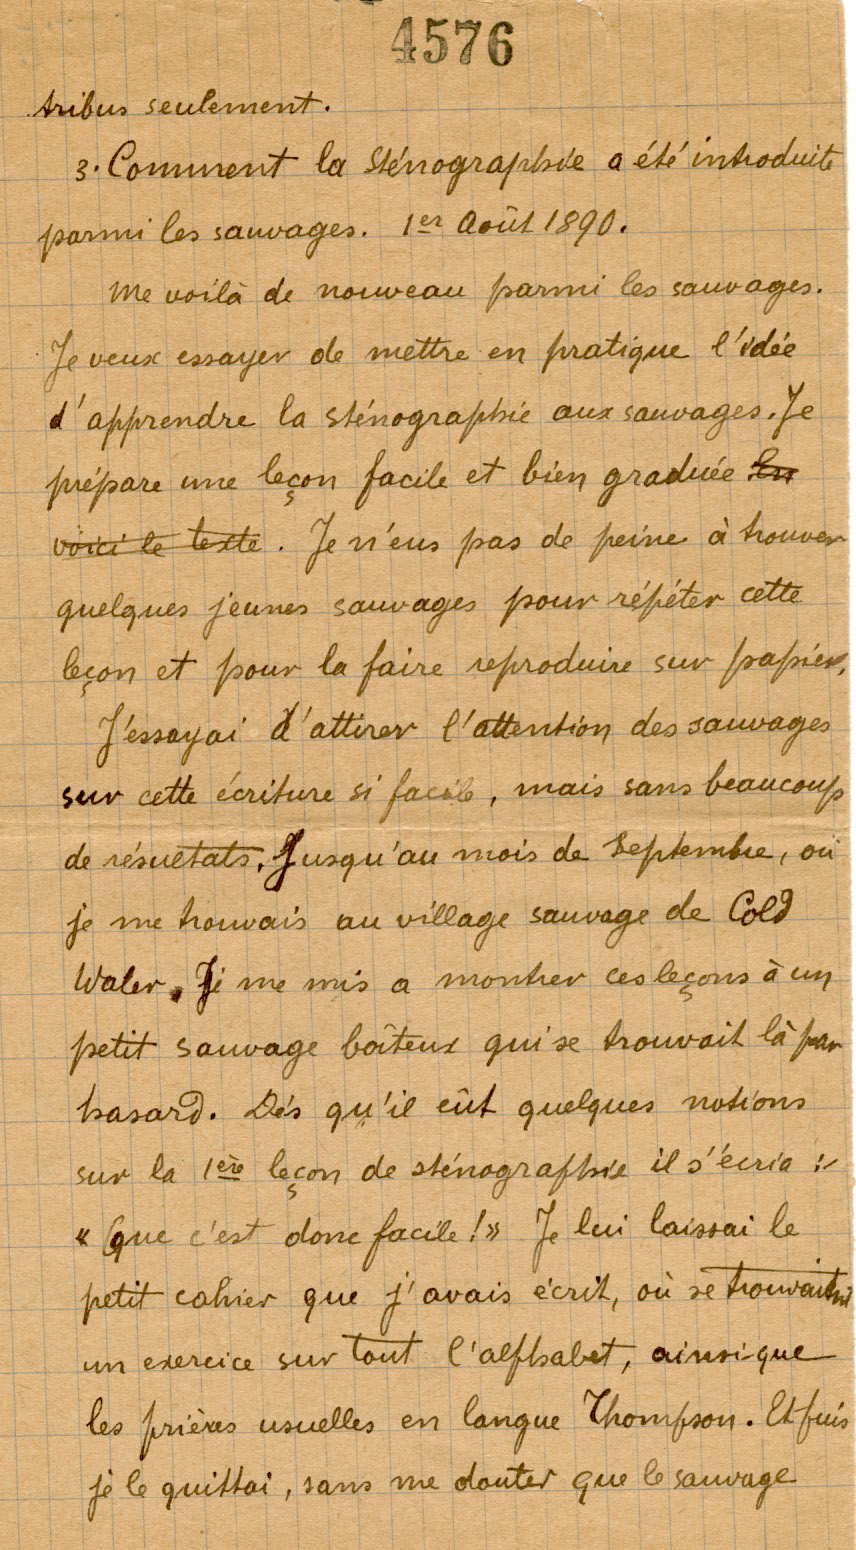 4576
tribus seulement.
3. Comment la sténographie a été introduite
parmi les sauvages. 1er Août 1890.
Me voilà de nouveau parmi les sauvages.
Je veux essayer de mettre en pratique l'idée
d'apprendre la sténographie aux sauvages. Je
prépare une leçon facile et bien graduée En
voici le texte. Je n'eus pas de peine à trouver
quelques jeunes sauvages pour répéter cette
leçon et pour la faire reproduire sur papier.
J'essayai d'attirer l'attention des sauvages
sur cette écriture si facile, mais sans beaucoup
de résultats. Jusqu'au mois de Septembre, où
je me trouvais au village sauvage de Cold
Water. Je me mis a montrer ces leçons à un
petit sauvage boîteux qui se trouvait là par
hasard. Dés qu'il eût quelques notions
sur la 1ère leçon de sténographie il s'écria :-
« Que c'est donc facile ! » Je lui laissai le
petit cahier que j'avais écrit, où se trouvaient
un exercice sur tout l'alphabet, ainsi que
les prières usuelles en langue Thompson. Et puis
je le quittai, sans me douter que le sauvage